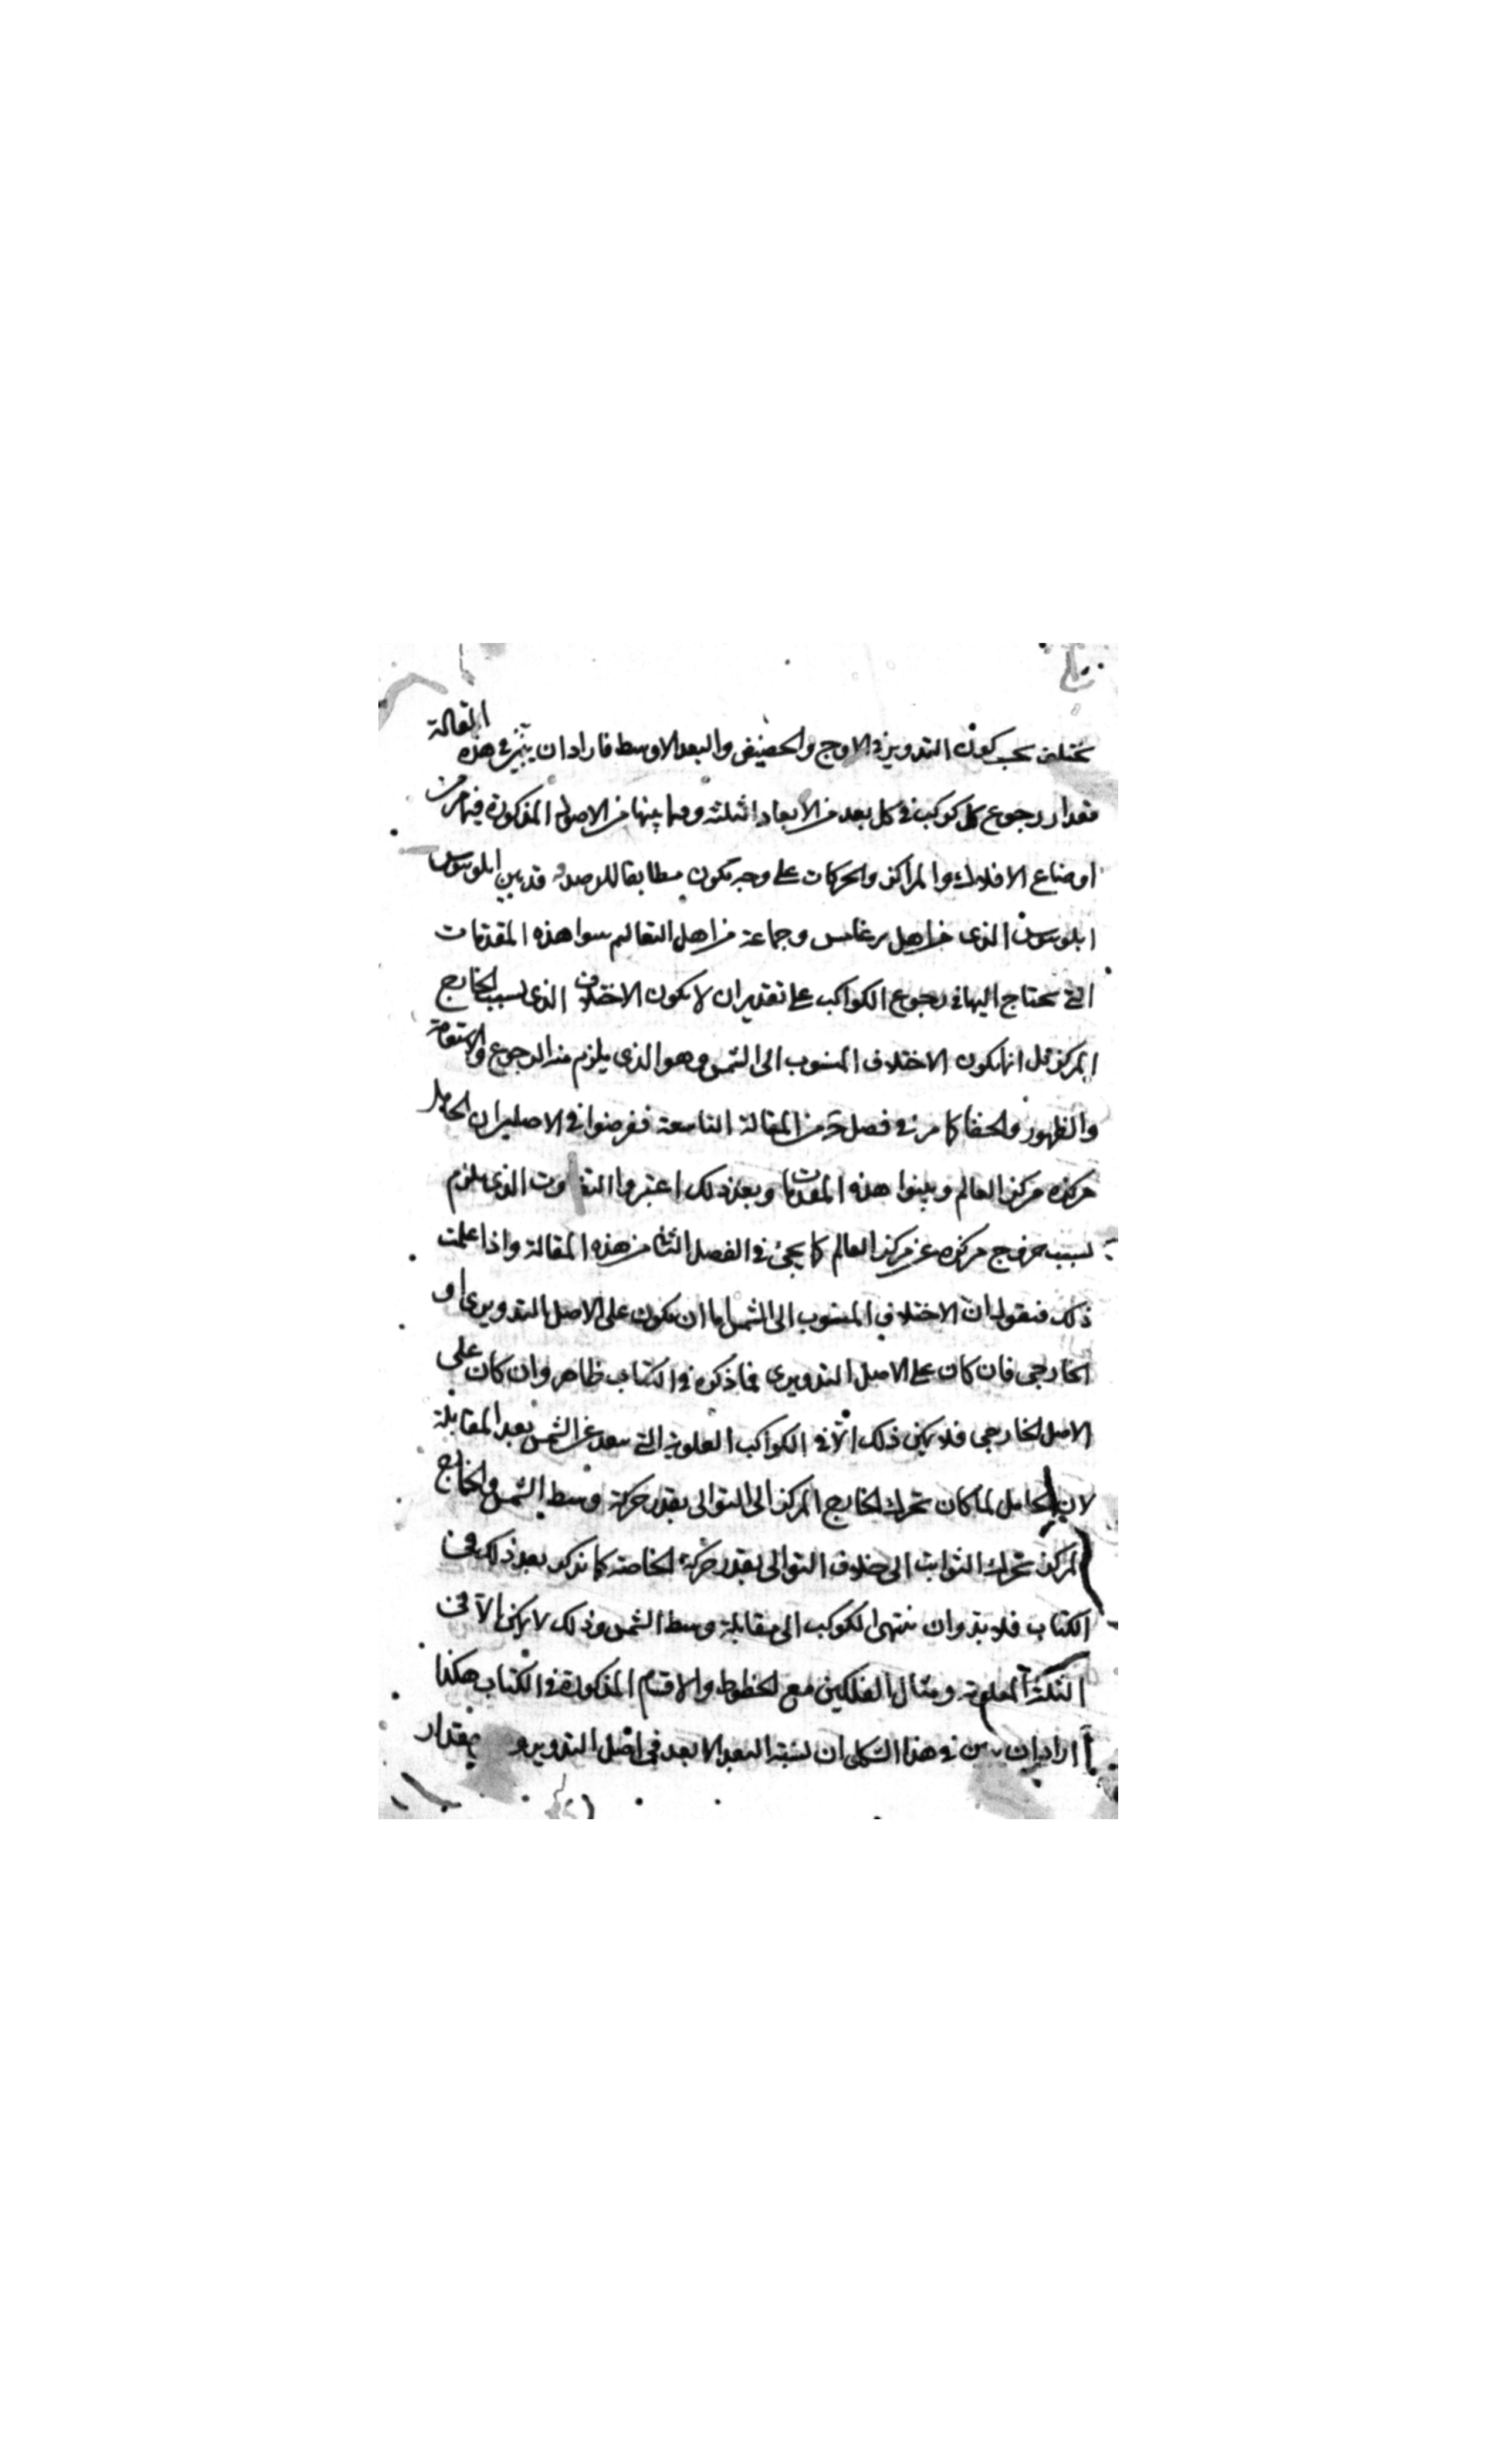 يختلف بحسب كون التدوير في الاوج والحضيض والبعد الاوسط فاراد ان يبين في هذه المقالة
مقدار رجوع كل كوكب في كل بعد من الابعاد الثلثة وفيما بينها من الاصول المذكورة فيما مر من
اوضاع الافلاك والمراكز والحركات على وجه يكون مطابقا للرصد قد بين ابلونيوس
ابلونيوس الذي من اهل برغامس وجماعة من اهل التعاليم سوا هذه المقدمات
التي يحتاج اليها في رجوع الكواكب على تقدير ان لا يكون الاختلاف الذي بسبب الخارج
المركز بل انما يكون الاختلاف المنسوب الى الشمس وهو الذي يلزم منه الرجوع والاستقامة
والظهور والخفا كما مر في فصل من المقالة التاسعة ففرضوا في الاصلين ان الحامل
مركزه مركز العالم وبينوا هذه المقدمات وبعد ذلك اعتبروا التفاوت الذي يلزم
بسبب خروج مركزه عن مركز العالم كما يجئ في الفصل الثاني من هذه المقالة واذا علمت
ذلك فنقول ان الاختلاف المنسوب الى الشمس اما ان يكون على الاصل التدويري او
الخارجي فان كان على الاصل التدويري فما ذكره في الكتاب ظاهر وان كان على
الاصل الخارجي فلا يمكن ذلك الا في الكواكب العلوية التي تبعد عن الشمس بعد المقابلة
لان الحامل لما كان يحرك الخارج المركز الى التوالي بقدر حركة وسط الشمس والخارج
المركز يحرك التوابت الى خلاف التوالي بقدر حركة الخاصة كما نذكر بعد ذلك في
الكتاب فلا بد وان ينتهي الكوكب الى مقابلة وسط الشمس وذلك لا يمكن الا في
الثلثة العلوية ومثال الفلكين مع الخطوط والاقسام المذكورة في الكتاب هكذا
اراد ان يبين في هذا الشكل ان نسبة البعد الابعد في اصل التدوير و بمقدار